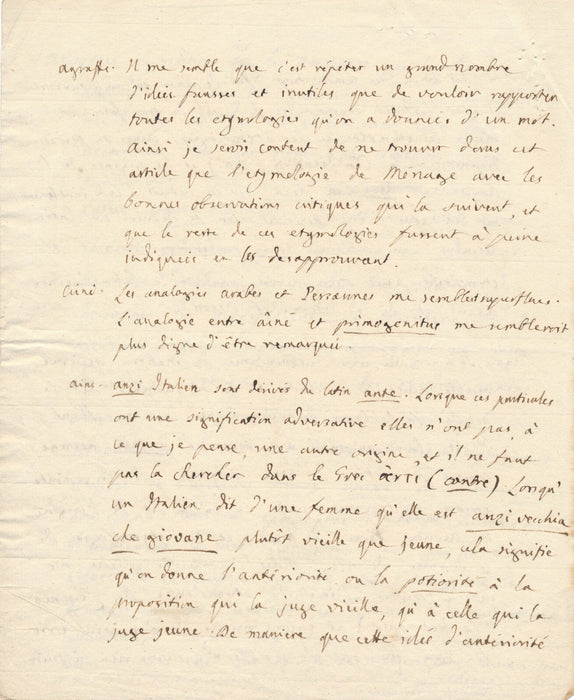 agraffe. Il me semble que c'est répéter un grand nombre
d'idées fausses et inutiles que de vouloir rapporter
toutes les etymologies qu'on a données d'un mot.
Ainsi je serois content de ne trouver dans cet
article que l'etymologie de Ménage avec les
bonnes observations critiques qui la suivent, et
que le reste de ces etymologies fussent à peine
indiquées en les desapprouvant.
Les analogies arabes et Persannes me semblent superflues.
L'analogie entre aîné et primogenitus me sembleroit
plus digne d'être remarquée.
ains. anzi Italien sont dérivés du latin ante. Lorsque ces particules
ont une signification adversative elles n'ont pas, à
ce que je pense, une autre origine, et il ne faut
pas la chercher dans le Grec ἀντὶ (contre). Lorsqu'
un Italien dit d'une femme qu'elle est anzi vecchia
che giovane plutôt vieille que jeune, cela signifie
qu'on donne l'antériorité, ou la potiorité à la
proposition qui la juge vieille, qu'à celle qui la
juge jeune. De maniere que cette idée d'antériorité